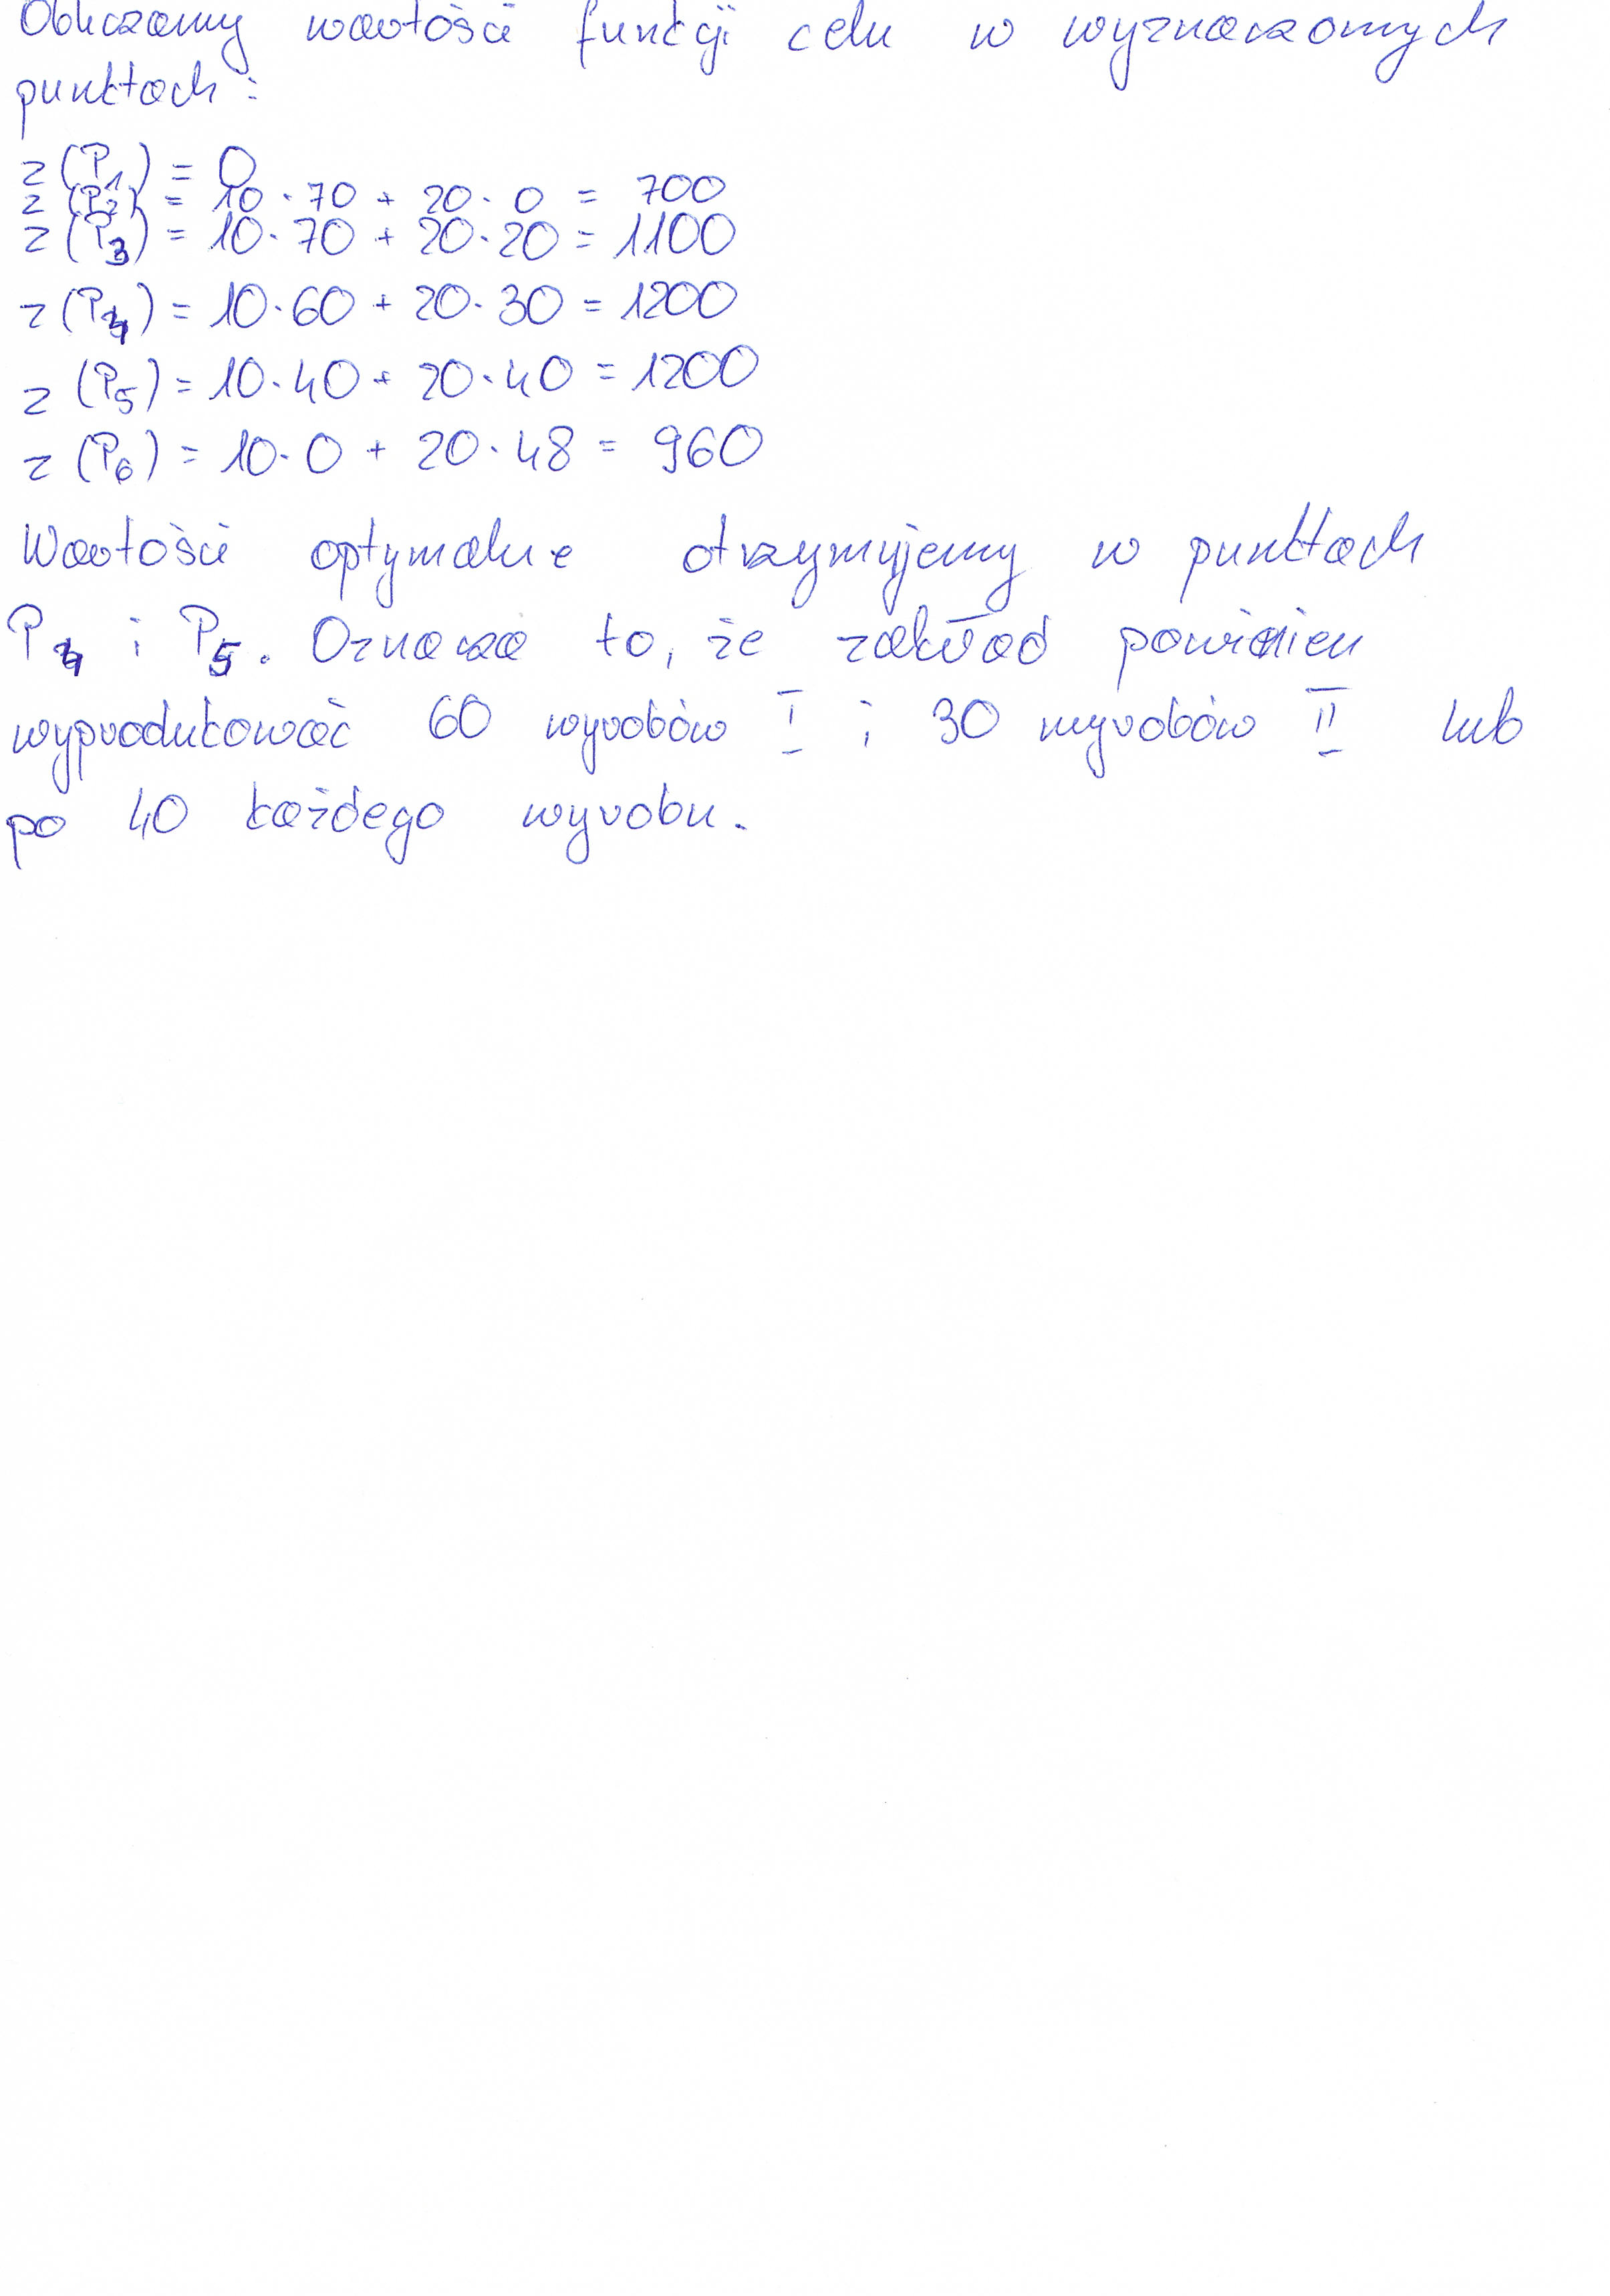 Obliczamy wartości funkcji celu w wyznaczonych
punktach:
z(P1) = 0
z(P2) = 10·70 + 20·0 = 700
z(P3) = 10·70 + 20·20 = 1100
z(P4) = 10·60 + 20·30 = 1200
z(P5) = 10·40 + 20·40 = 1200
z(P6) = 10·0 + 20·48 = 960
Wartości optymalne otrzymujemy w punktach
P4 i P5. Oznacza to, że zakład powinien
wyprodukować 60 wyrobów I i 30 wyrobów II lub
po 40 każdego wyrobu.